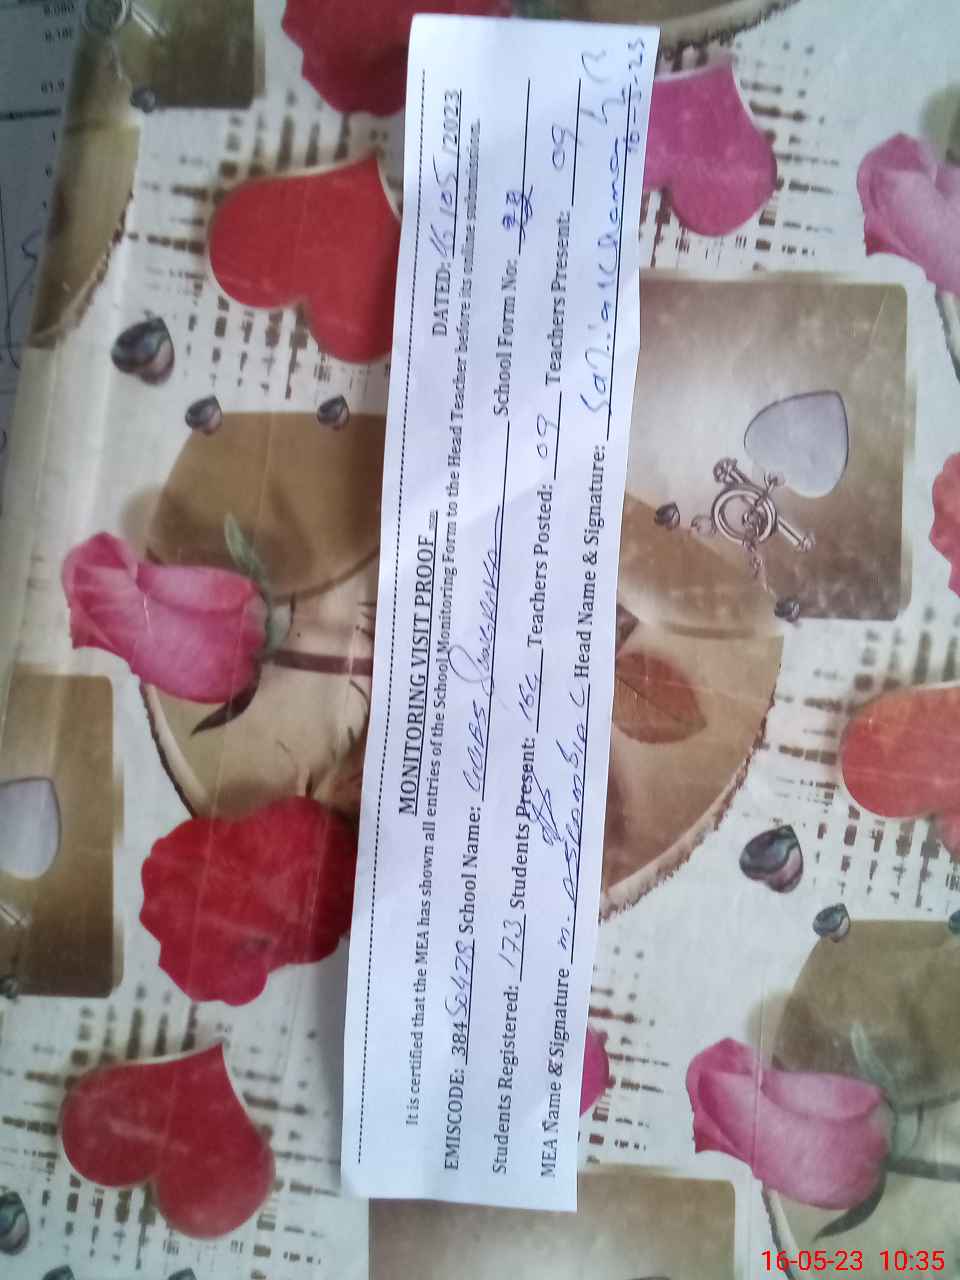 MONITORING VISIT PROOF
It is certified that the MEA has shown all entries of the School Monitoring Form to the Head Teacher before its online submission.
DATED: 16/05/2023
EMISCODE: 38450478 School Name: School Form No:
Students Registered: 173 Students Present: 164 Teachers Posted: 09 Teachers Present: 09
MEA Name & Signature m. Head Name & Signature:
16-5-23
16-05-23 10:35